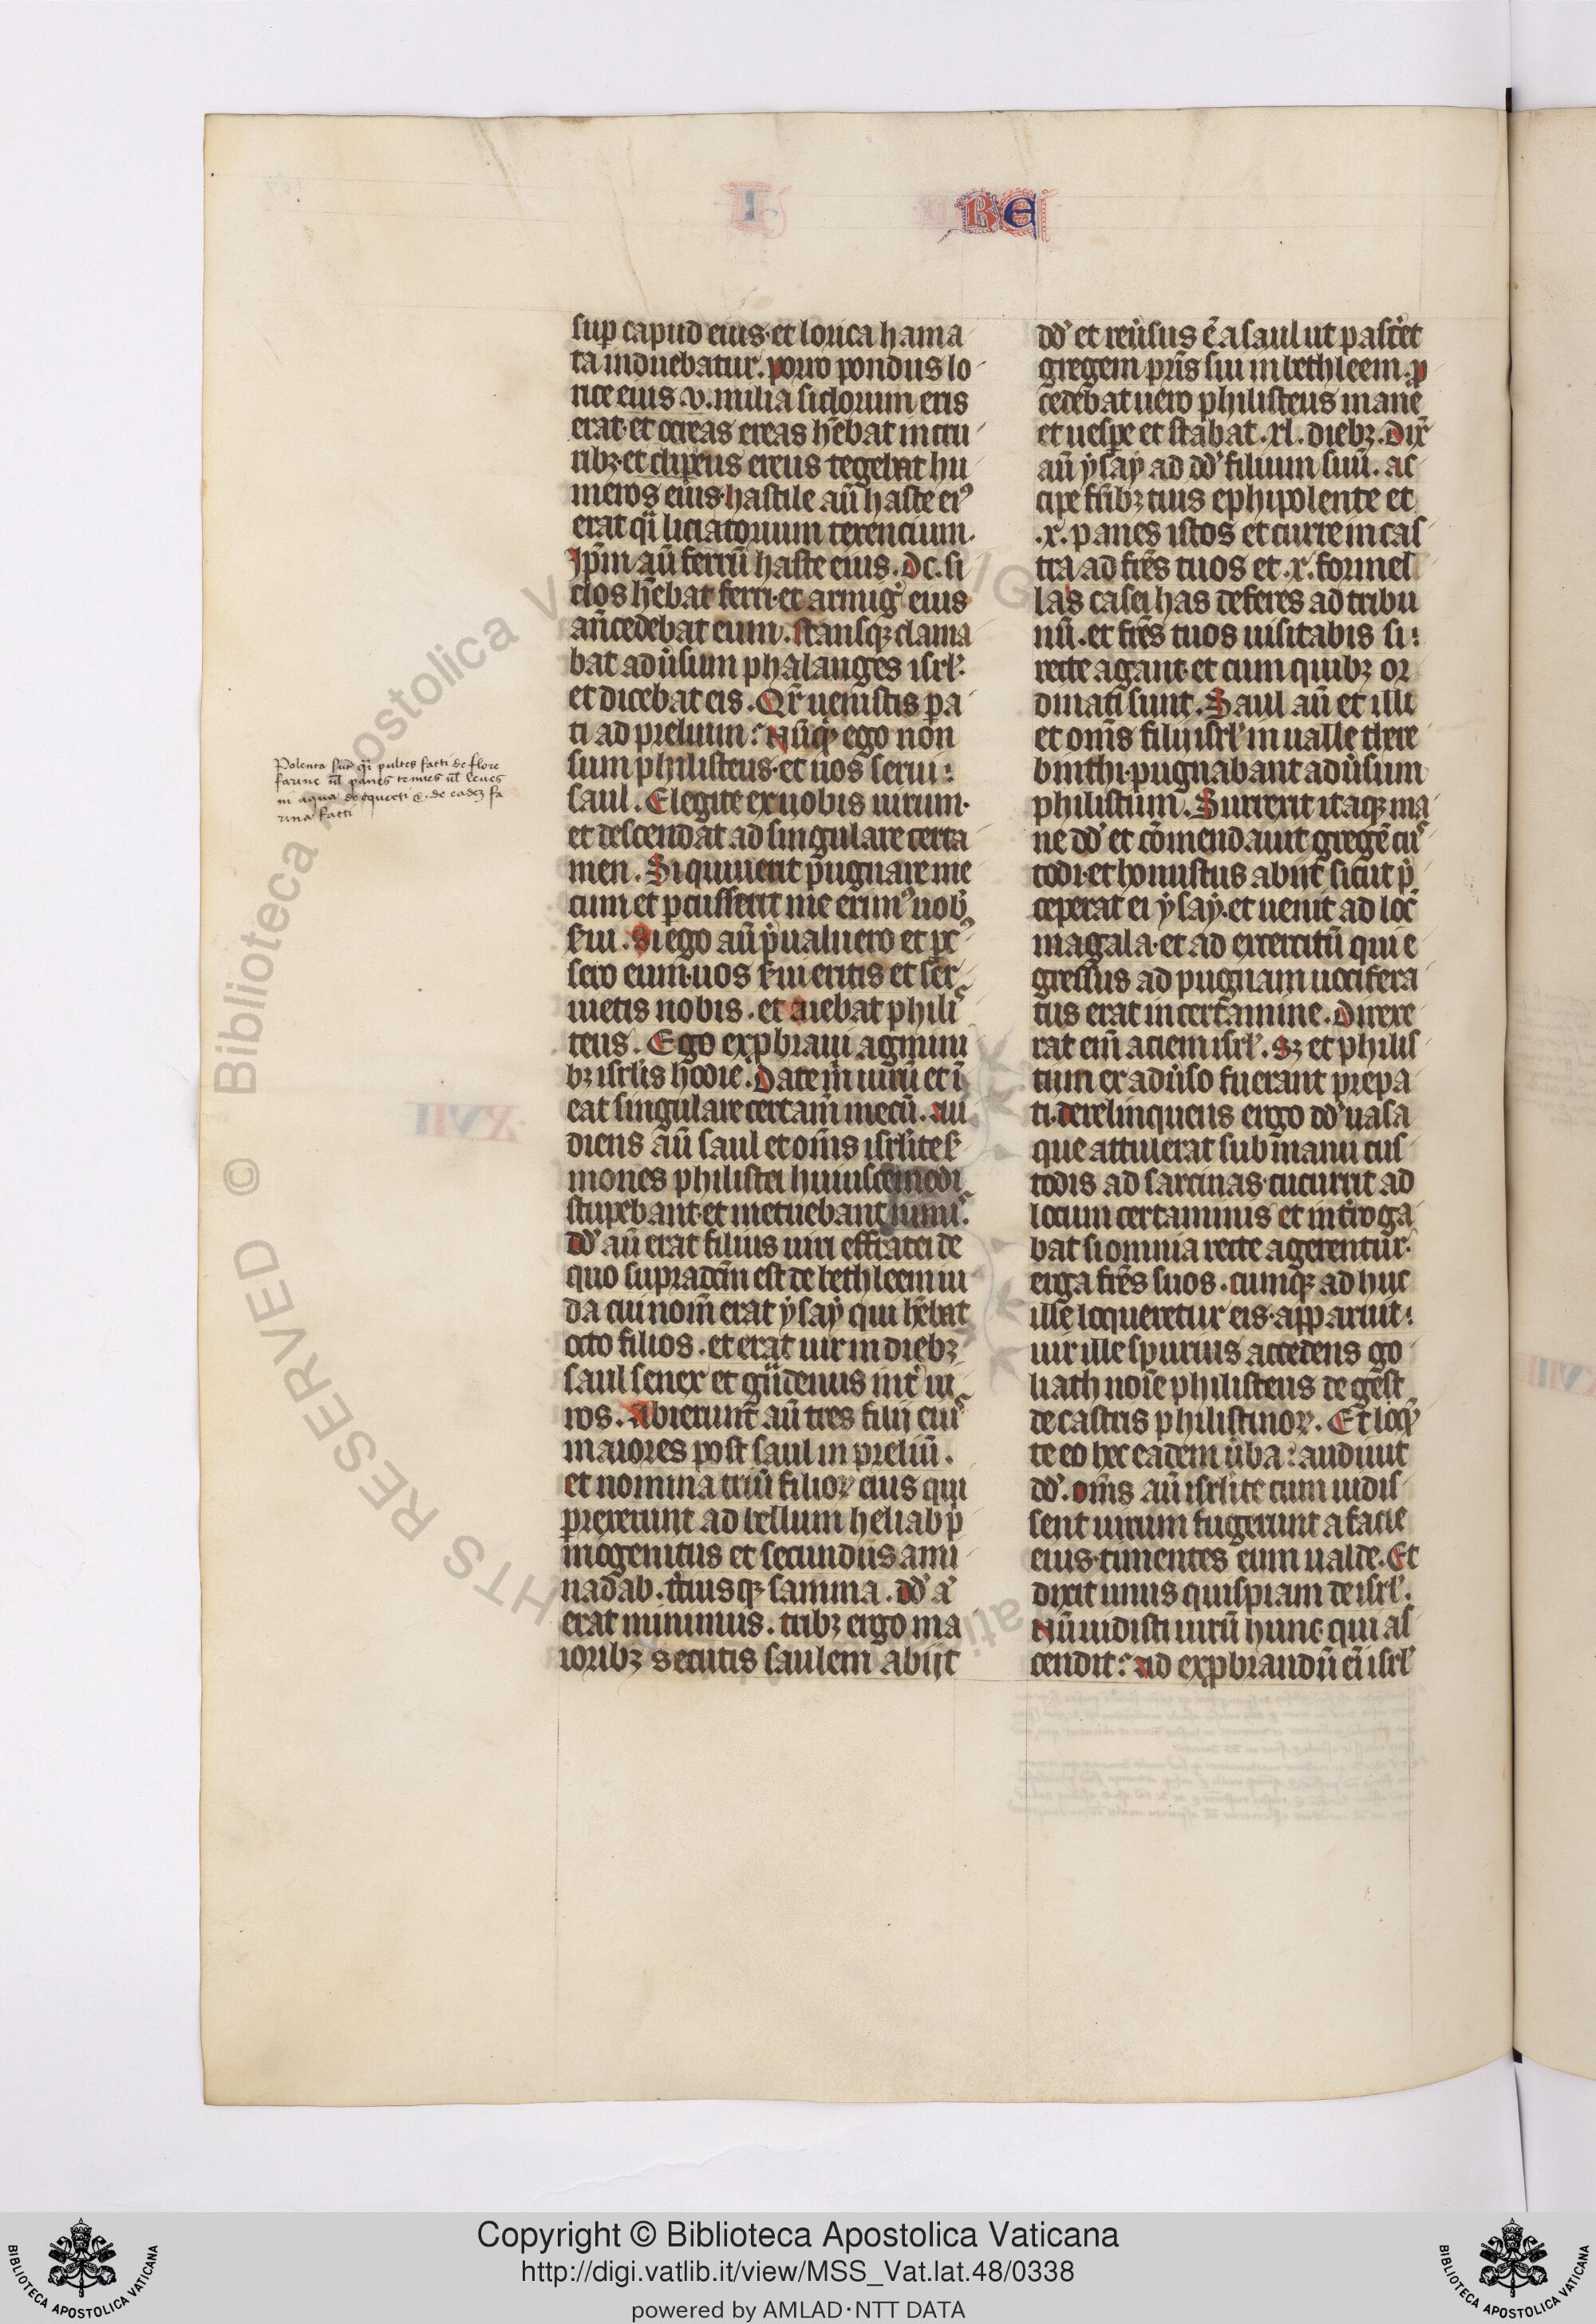 RE
sup capud eius·et lorica hama
ta induebatur. porro pondus lo
rice eius .v. milia siclorum eris
erat·et ocreas ereas hēbat in cru
ribꝫ·et clipeus ereus tegebat hu
meros eius·hastile aū haste eiꝰ
erat qͥ liciatorium texencium.
Ipm̄ aū ferrū haste eius. dc. si
clos hēbat ferri·et armigͥ eius
an̄cedebat eum. stansqꝫ clama
bat adūsum phalanges isrl̓·
et dicebat eis. Qr̄ uenistis pa
ti ad prelium: Nūqͥd ego non
sum philisteus·et uos serui:
saul. Elegite ex uobis uirum·
et descendat ad singulare certa
men. Si quiuerit pugnare me
cum et ꝑcusserit me erimꝰ uob̓
s̓ui. Si ego aū p̄ualuero et ꝑcꝰ
sero eum·uos s̓ui eritis et ser
uietis nobis. et aiebat philiˢ
teus. Ego exꝓbraui agmini
bꝫ isrl̓is hodie. Date m̄ uirū et ī
eat singulare certam̄ mecū. Au
diens aū saul et om̄s isrl̓ite s̓
mones philistei huiuscemodi
stupebant·et metuebant nimiˢ.
dd̓ aū erat filius uiri effratei de
quo supradcm̄ est de bethleem iu
da cui nom̄ erat ẏsaẏ qui hēbat
octo filios. et erat uir in diebꝫ
saul senex et gͣndeuus int̓ ui
ros. Abierunt aū tres filij eiuˢ
maiores post saul in preliū.
et nomina triū filioꝝ eius qui
ꝑrexerunt ad bellum heliab pͥ
mogenitus et secundus ami
nadab. t̓ciusqꝫ samma. dd̓ aͫ
erat minimus. tribꝫ ergo ma
ioribꝫ secutis saulem abijt
dd̓ et reūsus ē a saul ut pasc̓et
gregem pr̄is sui in bethleem. p
cedebat uero philisteus mane
et uesꝑe et stabat .xl. diebꝫ. Dix̄
aū ẏsaẏ ad dd̓ filium suū. ac
cipe fr̄ibꝫ tuis ephi polente et
.x. panes istos et curre in cas
tra ad fr̄es tuos et .x. formel
las casei has deferes ad tribu
nū. et fr̄es tuos uisitabis si:
recte agant·et cum quibꝫ or
dinati sunt. Saul aū et illi
et om̄s filij isrl̓ in ualle there
binthi·pugnabant adūsum
philistiim. Surrexit itaqꝫ ma
ne dd̓ et cōmendauit gregē cuˢ
todi·et honustus abijt sicut p̄
ceperat ei ẏsaẏ·et uenit ad loc̄
magala·et ad exercitū qui e
gressus ad pugnam uocifera
tus erat in certamine. Direxe
rat em̄ aciem isrl̓. Sꝫ et philis
tiim ex adūso fuerant prepa
ti·derelinquens ergo dd̓ uasa
que attulerat sub manu cus
todis ad sarcinas·cucurrit ad
locum certaminis et int̓roga
bat si omnia recte agerentur·
erga fr̄es suos. cumqꝫ ad huc
ille loqueretur eis·apparuit:
uir ille spurius accedens go
liath noīe philisteus de geth
de castris philistinoꝝ. Et loqͣn
te eo hec eadem ūba: audiuit
dd̓. om̄s aū isrl̓ite cum uidis
sent uirum fugerunt a facie
eius·timentes eum ualde. Et
dixit unus quispiam de isrl̓.
Nū uidisti uirū hunc·qui as
cendit: ad exꝓbrandū ei isrl̓
Polenta sūt qͥ pultes facti de flore
farine ul̓ panes tenues ul̓ leues
in aqua decocti ⁊ de eadeꝫ fa
rina facti
© Biblioteca Apostolica Vaticana
RIGHTS RESERVED
Copyright © Biblioteca Apostolica Vaticana
http://digi.vatlib.it/view/MSS_Vat.lat.48/0338
powered by AMLAD·NTT DATA
BIBLIOTECA APOSTOLICA VATICANA
BIBLIOTECA APOSTOLICA VATICANA